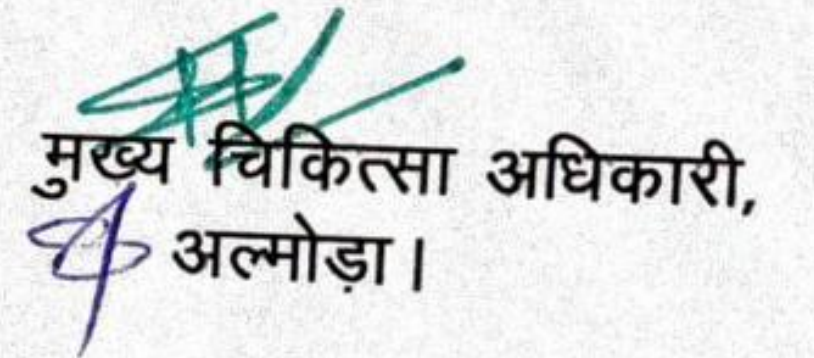 मुख्य चिकित्सा अधिकारी,
अल्मोड़ा।